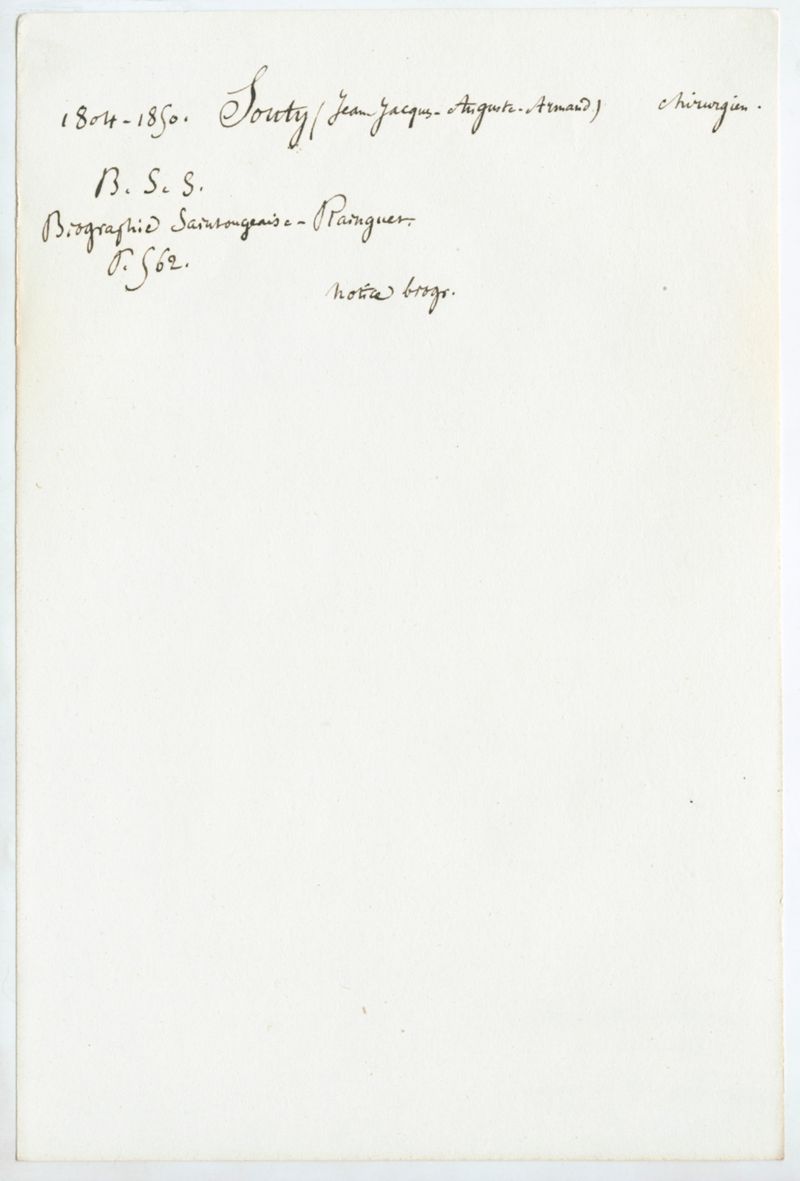 1804-1850. Souty (Jean Jacques-Auguste-Armand) chirurgien.
B. S. S.
Biographie Saintongeaise - Rainguet.
P. 562.
notice biogr.